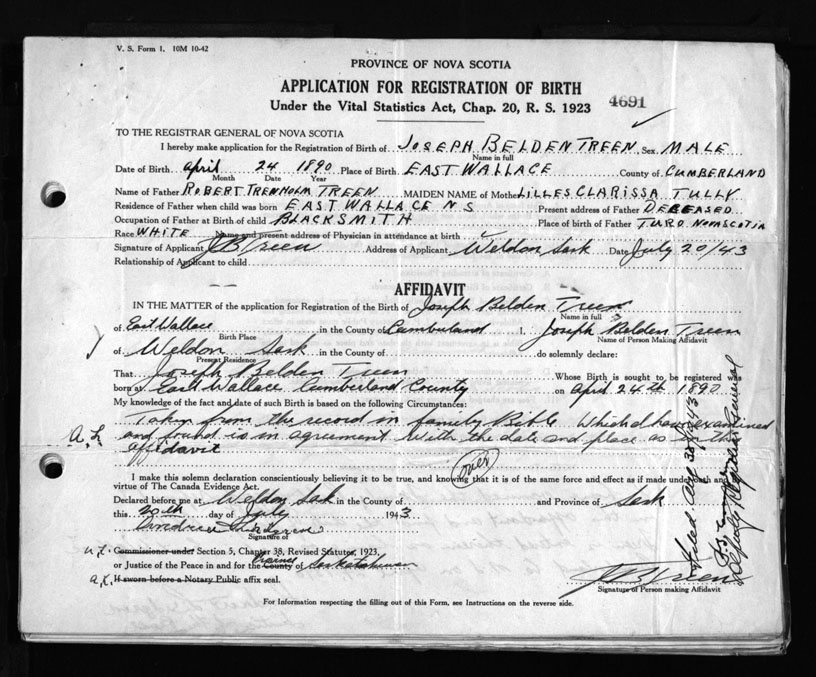 V. S. Form 1. 10M 10-42
PROVINCE OF NOVA SCOTIA
APPLICATION FOR REGISTRATION OF BIRTH
Under the Vital Statistics Act, Chap. 20, R. S. 1923
4691
TO THE REGISTRAR GENERAL OF NOVA SCOTIA
I hereby make application for the Registration of Birth of JOSEPH BELDEN TREEN Sex MALE
Name in full
Date of Birth April 24 1890 Place of Birth EAST WALLACE County of CUMBERLAND
Month Date Year
Name of Father ROBERT TRENHOLM TREEN MAIDEN NAME of Mother LILLES CLARISSA TULLY
Residence of Father when child was born EAST WALLACE N S Present address of Father DECEASED
Occupation of Father at Birth of child BLACKSMITH Place of birth of Father TURO NOVASCOTIA
Race WHITE Name and present address of Physician in attendance at birth
Signature of Applicant J B Treen Address of Applicant Weldon Sask Date July 20/43
Relationship of Applicant to child
AFFIDAVIT
IN THE MATTER of the application for Registration of the Birth of Joseph Belden Treen
Name in full
of East Wallace in the County of Cumberland I, Joseph Belden Treen
Birth Place Name of Person Making Affidavit
of Weldon Sask in the County of do solemnly declare:
Present Residence
That Joseph Belden Treen Whose Birth is sought to be registered was
born at East Wallace Cumberland County on April 24th 1890
My knowledge of the fact and date of such Birth is based on the following Circumstances:
Taken from the record in family Bible Which I have examined
A. L. and found is in agreement with the date and place as in this
affidavit
(over)
I make this solemn declaration conscientiously believing it to be true, and knowing that it is of the same force and effect as if made under oath and
virtue of The Canada Evidence Act.
Declared before me at Weldon Sask in the County of and Province of Sask
this 20th day of July 1943
Andrew
Signature of
A.L. Commissioner under Section 5, Chapter 38, Revised Statutes, 1923.
or Justice of the Peace in and for the County of Province Saskatchewan
A.L. If sworn before a Notary Public affix seal.
J B Treen
Signature of Person making Affidavit
For Information respecting the filling out of this Form, see Instructions on the reverse side.
Filed Aug 30 1943
Deputy Registrar General